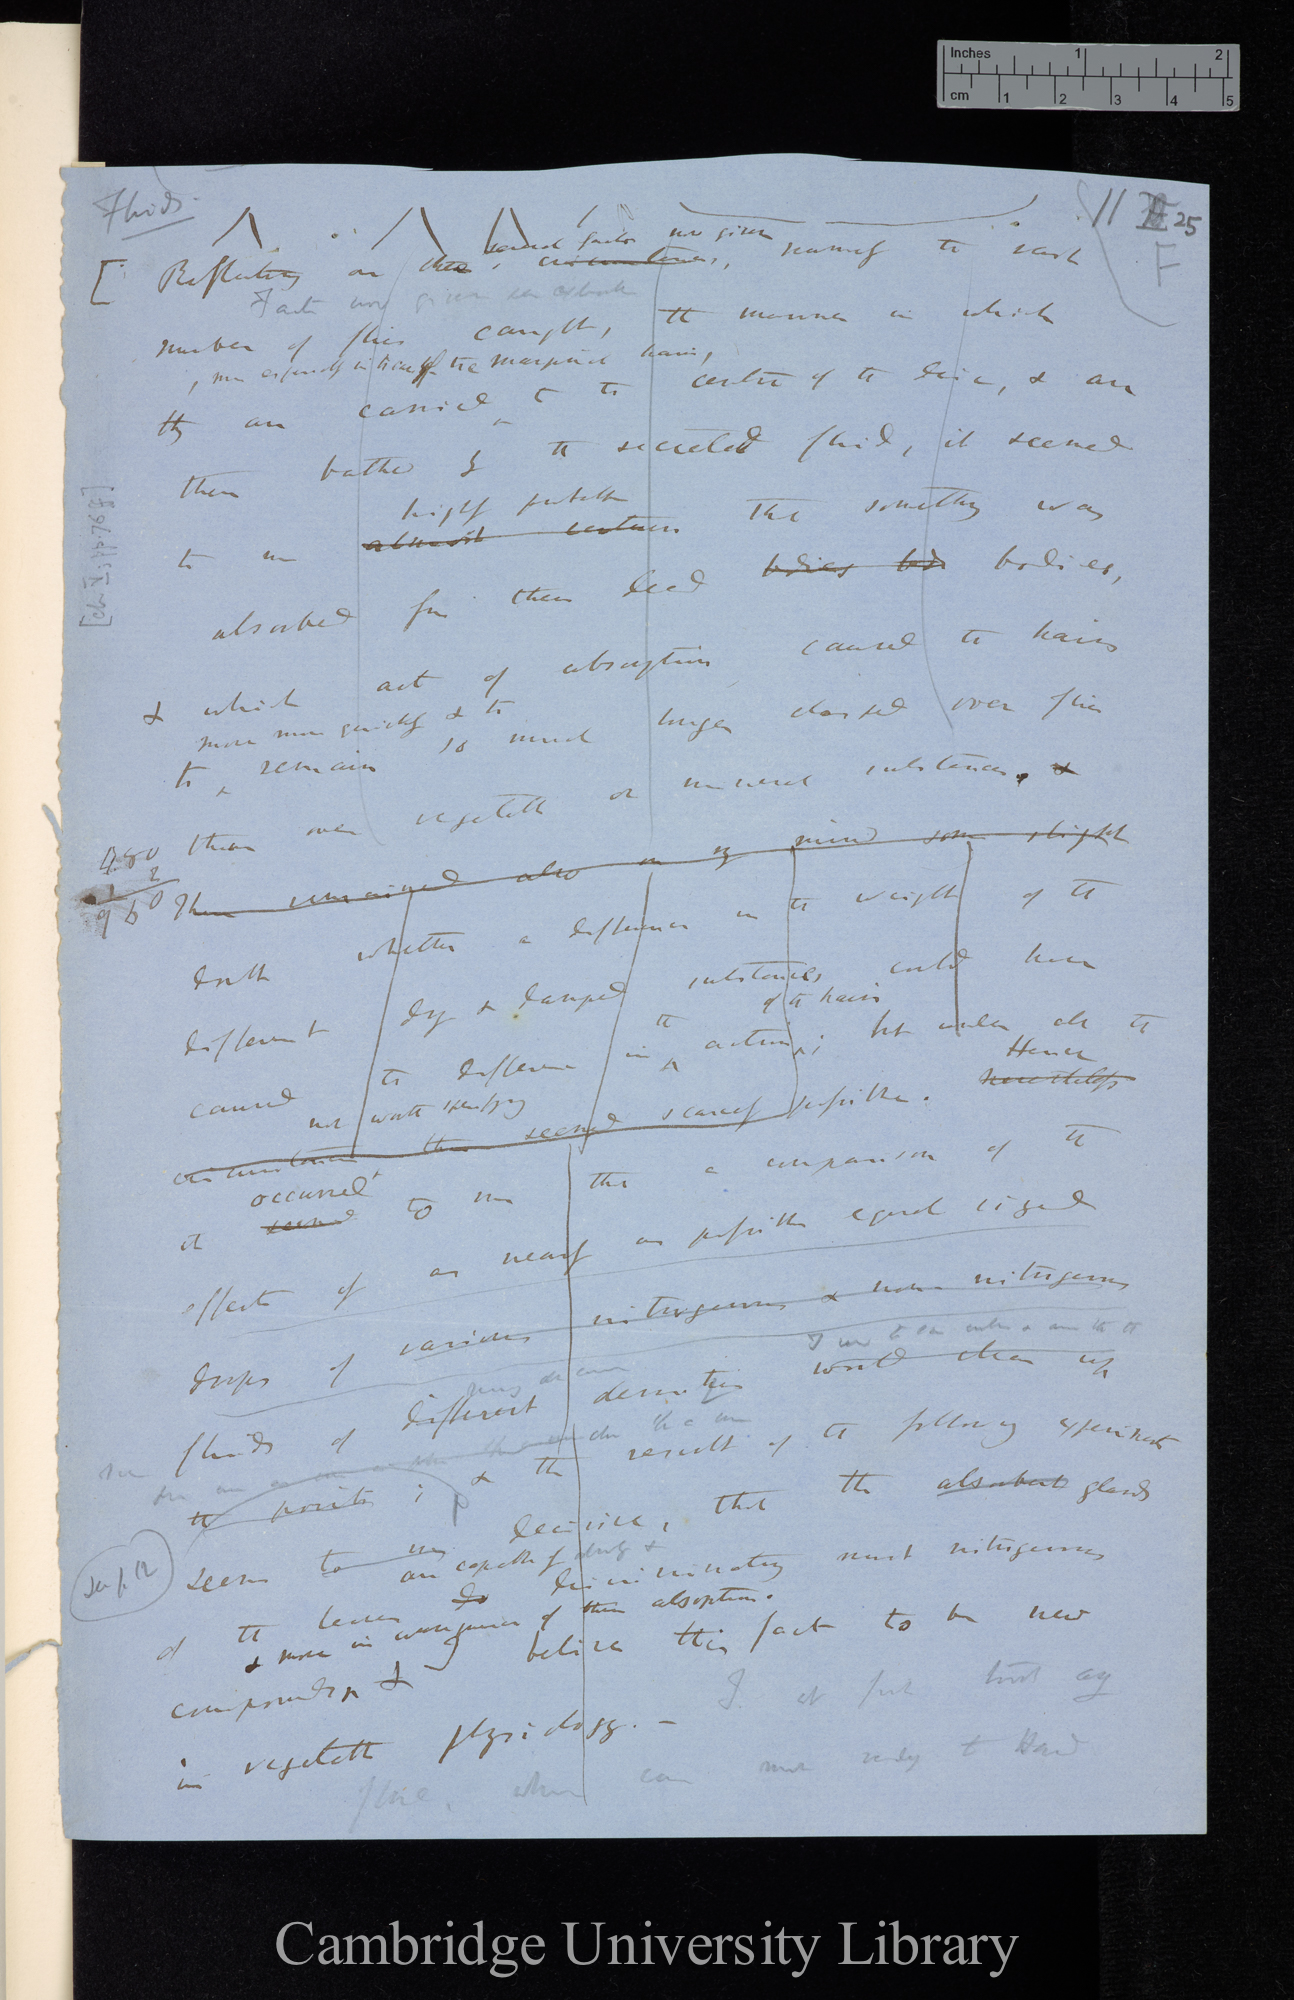 Inches 1 2
cm 1 2 3 4 5
Fluids.
11 25
F
several facts now given
[ Reflecting on these, circumstances, namely the vast
Facts now given
number of flies caught, the manner in which
the marginal hairs,
they are carried to the centre of the leaf, & are
then bathed by the secreted fluid, it seemed
highly probable
to me almost certain that something was
absorbed from their dead bodies bodies,
[ch V, pp. 76 ff]
& which act of absorption caused the hairs
move more quickly & to
to remain so much longer closed over flies
than over vegetable or mineral substances. &
480
2
960
There remained also in my mind some slight
doubt whether a difference in the weight of the
different dry & damped substances could have
of the hairs
caused the difference in the action; but under all the
not worth
Hence
circumstances this seemed scarcely possible. Nevertheless
occurred
it seemed to me that a comparison of the
effects of as nearly as possible equal sized
drops of various nitrogenous & non nitrogenous
fluids of different densities would clear up
the points; & the result of the following experiments
seems to me decisive, that the absorbent glands
see p. 12
are capable of
of the leaves do discriminating most nitrogenous
& move in consequence of their absorption.
compounds, & I believe this fact to be new
in vegetable physiology. —
I at first
flies, when can
Cambridge University Library